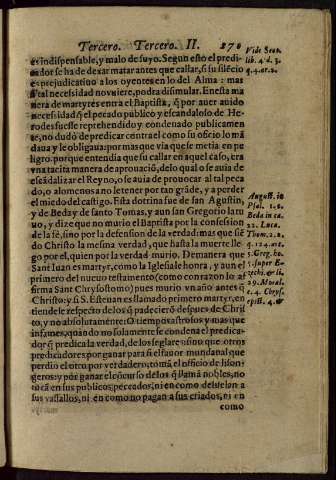 Tercero. Tercero. II. 270
es indispensable, y malo de suyo. Segun esto el predi-
cador se ha de dexar matar antes que callar, si su silécio
es prejudicatiuo a los oyentes en lo del Alma: mas
si tal necessidad no vuiere, podra dissimular. En esta ma
nera de martyres entra el Baptista, q̃ por auer auido
necessidad q̃ el pecado publico y escandaloso de He-
rodes fuesse reprehendido y condenado publicamen
te, no dudò de predicar contra el como su oficio lo mã
daua y le obligaua: por mas que via que se metia en pe
ligro. porque entendia que su callar en aquel caso, era
vna tacita manera de aprouaciõ, de lo qual o se auia de
escãdalizar el Reyno, o se auia de prouocar al tal peca
do, o alomenos a no le tener por tan grãde, y a perder
el miedo del castigo. Esta dotrina fue de san Agustin,
y de Beda y de santo Tomas, y aun san Gregorio la tu
uo, y dize que no murio el Baptista por la confession
de la fè, sino por la defension de la verdad: mas que siẽ
do Christo la mesma verdad, que hasta la muerte lle-
go por el, quien por la verdad murio. De manera que
Sant Iuan es martyr, como la Iglesia le honra, y aun el
primero del nueuo testamento (como con razon lo a-
firma Sant Chrysostomo) pues murio vn año antes q̃
Christo: y si S. Esteuan es llamado primero martyr, en
tiendese respecto de los q̃ padecierõ despues de Chris
to, y no absolutamente. O tiempo astroso y mas que
infames, quando no solamente se condena el predica-
dor q̃ predica la verdad, de los seglares: sino que otros
predicadores por ganar para si el fauor mundanal que
perdio el otro por verdadero, tomã el officio de lison-
geros: y por ganar el cõcurso de los q̃ llamã nobles, no
tocã en sus publicos peccados, ni en como desuelan a
sus vassallos, ni en como no pagan a sus criados, ni en
como
Vide Scot.
lib. 4. d. 3.
q. 4. ar. 2.
August. in
Psal.
Beda in ca.
Luca.
Thom. 2. 2.
q. 124. art.
5. Greg. ho.
super E-
zechi. & li.
29. Moral.
c. 4. Chryso.
epist. 4.